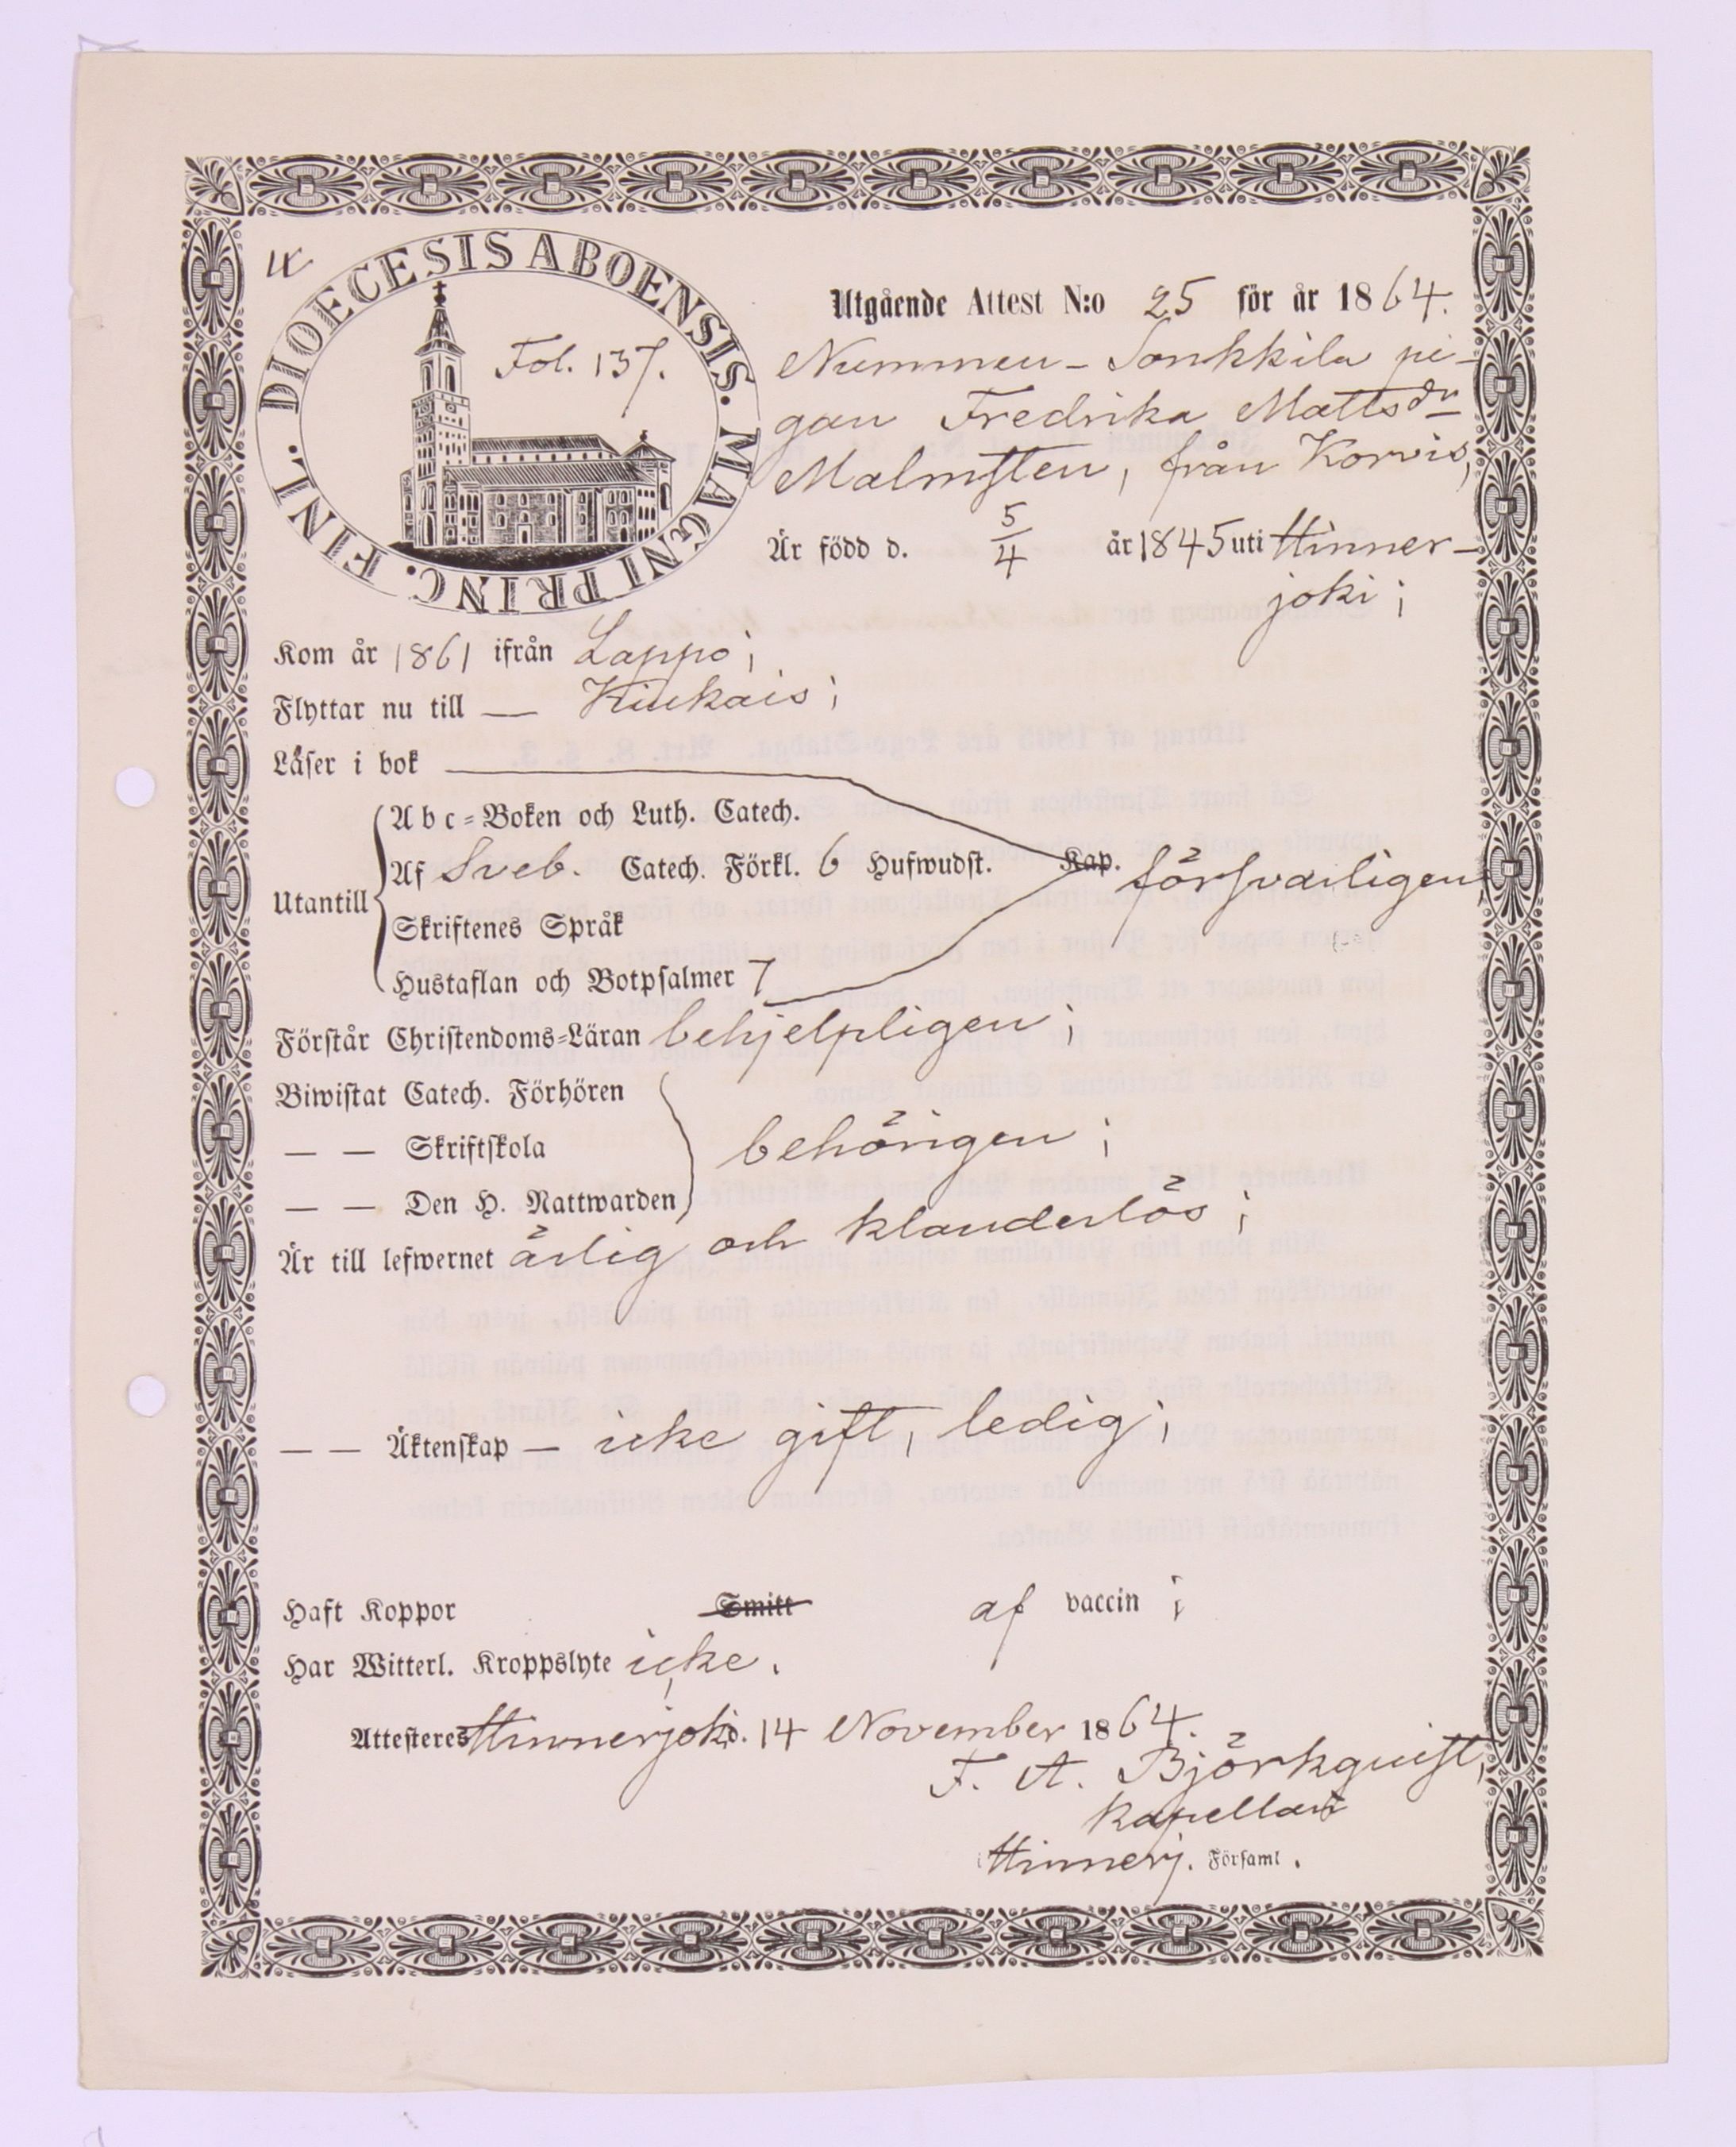 DIOECESIS ABOENSIS. MAGNI PRINC. FINL.
Fol. 137.
Utgående Attest N:o 25 för år 1864.
Nummen-Sonkkila pi-
gan Fredrika Mattsdr
Malmsten, från Korvis,
Är född d. 5/4 år 1845 uti Hinner-
joki;
Kom år 1861 ifrån Lappo;
Flyttar nu till — Kiukais;
Läser i bok
Abc-Boken och Luth. Catech.
Af Sveb. Catech. Förkl. 6 Hufwudst. Kap. försvarligen
Utantill
Skriftenes Språk
Hustaflan och Botpsalmer 7
Förstår Christendoms-Läran behjelpligen;
Biwistat Catech. Förhören
— — Skriftskola behörigen;
— — Den H. Nattwarden
Är till lefwernet ärlig och klanderlös;
— — Äktenskap — icke gift, ledig;
Haft Koppor Smitt af vaccin;
Har Witterl. Kroppslyte icke.
Attesteres Hinnerjoki d. 14 November 1864.
F. A. Björkquist,
kapellan
i Hinnerj. Församl.